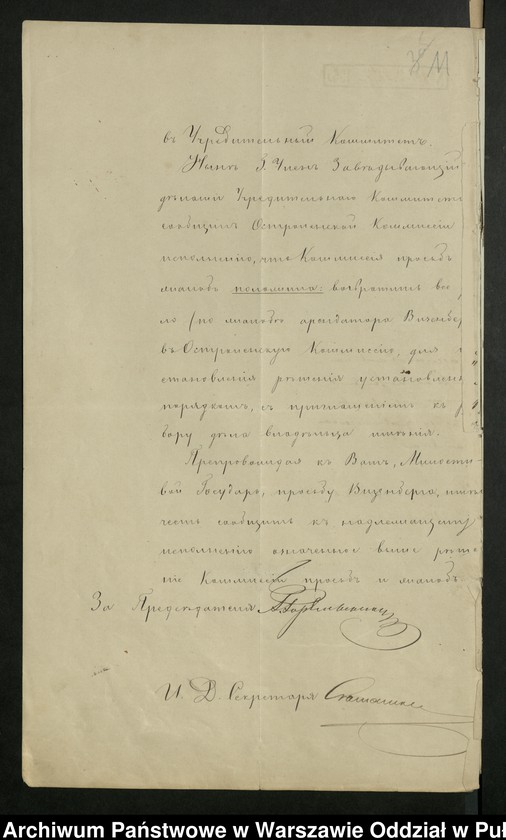 11
въ Учредительный Комитетъ.
Нынѣ Г. Членъ Завѣдывающій
дѣлами Учредительнаго Комитета
сообщилъ Остроленской Коммисіи
исполненію, что Коммисія просьбъ
и жалобъ положила: возвратить
ло (по жалобѣ арендатора
въ Остроленскую Коммисію, для
становленія рѣшенія установлен
порядкомъ, съ приглашеніемъ къ
бору дѣла владѣльца имѣнія.
Препровождая къ Вамъ, Милости-
вой Государь, просьбу Визенберга, имѣю
честь сообщить къ надлежащему
исполненію означенное выше рѣше
ніе Коммисіи просьбъ и жалобъ
За Предсѣдателя
И. Д. Секретаря
Archiwum Państwowe w Warszawie Oddział w Puł